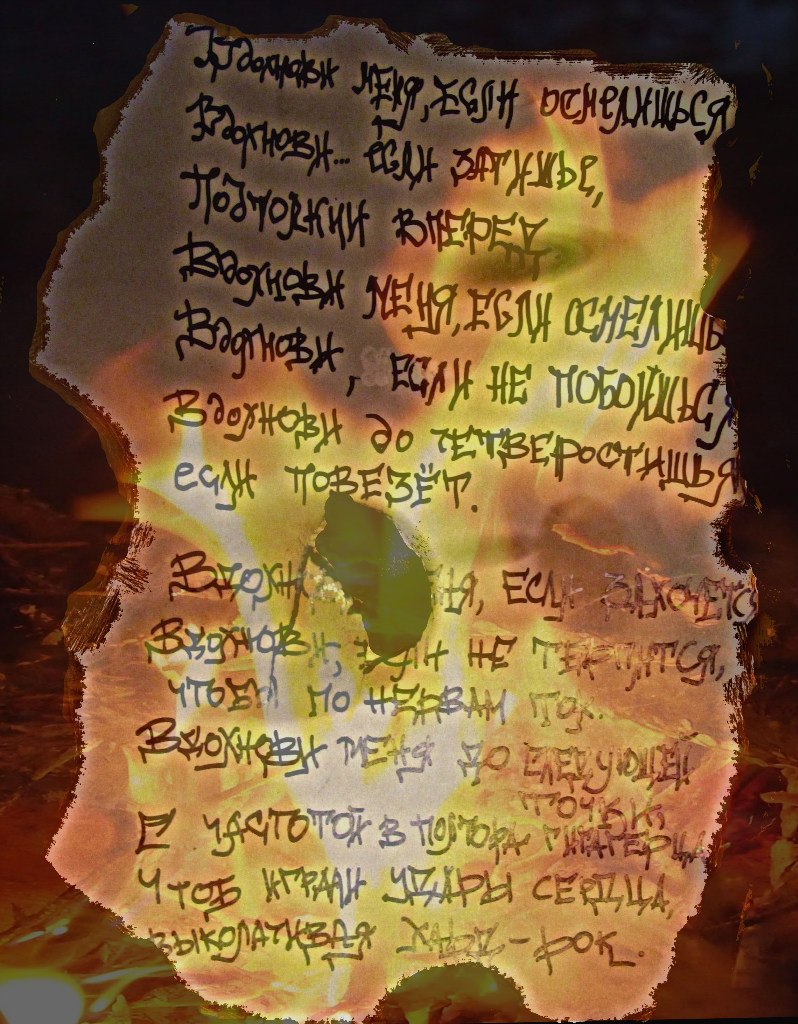 Вдохнови меня, если осмелишься
Вдохнови... если затишье,
Подтолкни вперед
Вдохнови меня, если осмелишь
Вдохнови, если не побоишься
Вдохнови до четверостишья
если повезёт.
Вдохн ня, если захочетс
Вдохнови, если не терпится,
чтобы по нервам ток.
Вдохнови меня до следующей
точки,
С частотой в полтора гигагерца
Чтоб играли удары сердца,
выколачивая хард-рок.